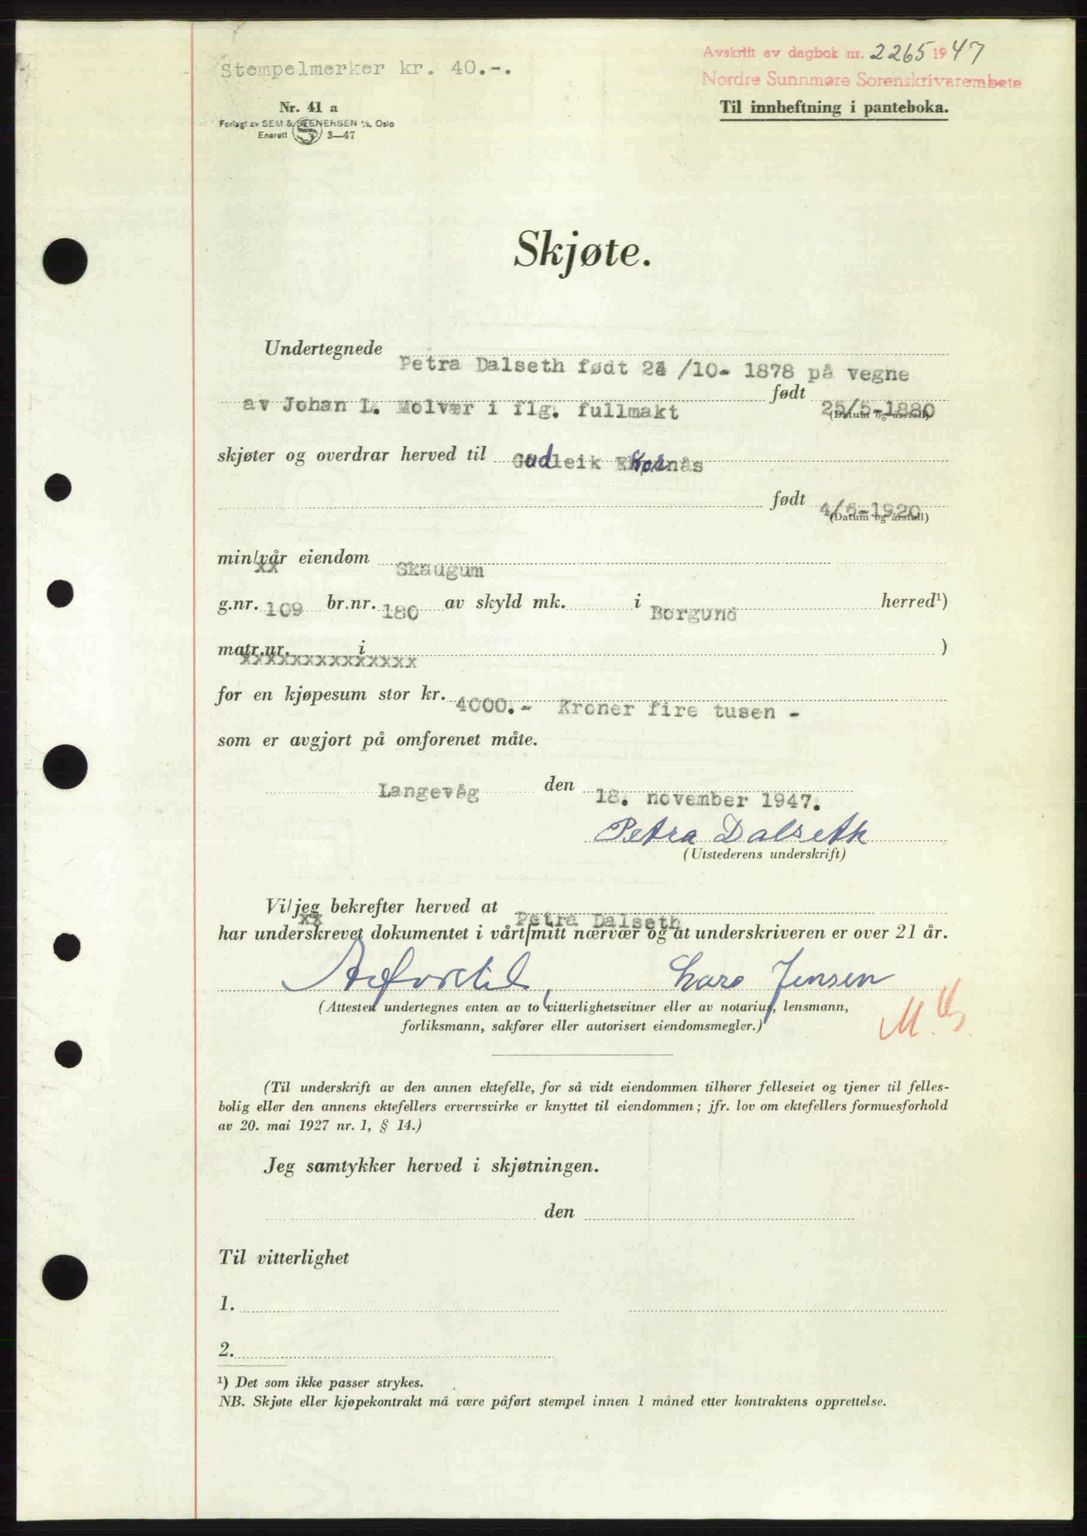 Stempelmerker kr. 40.-.
Avskrift av dagbok nr. 2265 1947
Nordre Sunnmøre Sorenskriverembete
Nr. 41 a
Til innheftning i panteboka.
Forlagt av SEM & STENERSEN A/S, Oslo
Enerett 3—47
Skjøte.
Undertegnede Petra Dalseth født 24/10- 1878 på vegne
av Johan L. Molvær i flg. fullmakt født 25/5-1880
(Datum og årstall)
skjøter og overdrar herved til Gudleik Ekornås
født 4/6-1920
(Datum og årstall)
min/vår eiendom Skaugum
g.nr. 109 br.nr. 180 av skyld mk. i Borgund herred¹)
matr.nr. i )
for en kjøpesum stor kr. 4000.- Kroner fire tusen -
som er avgjort på omforenet måte.
Langevåg den 18. november 1947.
Petra Dalseth
(Utstederens underskrift)
Vi/jeg bekrefter herved at Petra Dalseth
har underskrevet dokumentet i vårt/mitt nærvær og at underskriveren er over 21 år.
Lars Jensen
(Attesten undertegnes enten av to vitterlighetsvitner eller av notarius, lensmann,
forliksmann, sakfører eller autorisert eiendomsmegler.)
(Til underskrift av den annen ektefelle, for så vidt eiendommen tilhører felleseiet og tjener til felles-
bolig eller den annens ektefellers ervervsvirke er knyttet til eiendommen; jfr. lov om ektefellers formuesforhold
av 20. mai 1927 nr. 1, § 14.)
Jeg samtykker herved i skjøtningen.
den
Til vitterlighet
1.
2.
¹) Det som ikke passer strykes.
NB. Skjøte eller kjøpekontrakt må være påført stempel innen 1 måned etter kontraktens opprettelse.